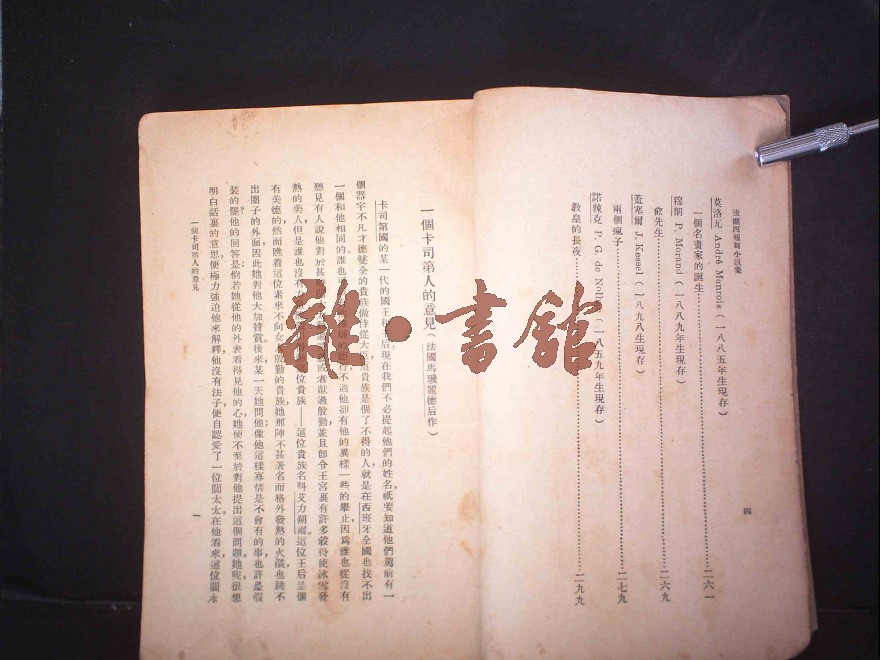 法蘭西短篇小說集
莫洛瓦 André Maurois（一八八五年生現存）
一個名畫家的誕生……二六一
穆朗 P. Morand（一八八九年生現存）
俞先生……二六九
蓋塞爾 J. Kessel（一八九八生現存）
兩個瘋子……二七九
諾辣克 P. G. de（一八五九年生現存）
教皇的長夜……二九九
四
一個卡司第人的意見（法國馬璣麗德后作）
卡司第國的某一代的國王和 后現在我們不必提起他們的姓名，祇要知道他們駕前有一
個器宇不凡才德雙全的貴族做侍從大臣這貴族是個了不得的人，就是在西班牙全國也找不出
一個和他相同的。誰也 不過他卻有他的異樣一些的舉止，因爲誰也從沒有
聽見有人說他對於甚 或者獻過殷勤，並且卽令王宮裏有許多穀得使冰雪發
熱的美人，但是誰也沒有 位貴族——這位貴族名叫艾力朔雨。這位王后是個
有美德的，然而瞧着這位素來不向女 殷勤的貴族，她那陣不甚著名而格外發熱的火燄，也跳不
出圈子的外面，因此她對他大加賛賞。後來某一天她問他；像他這樣寡情是不會有的事，也許是假
裝的罷？他的回答是：倘若她從他的外表看得見他的心，她便不至於對他提出這個問題。她呢，很想
明白話裏的意思，便極力強迫他來解釋，他沒有法子便自認愛了一位闊太太。在他看來，這位闊太
一個卡司第人的意見
一
雜·書館